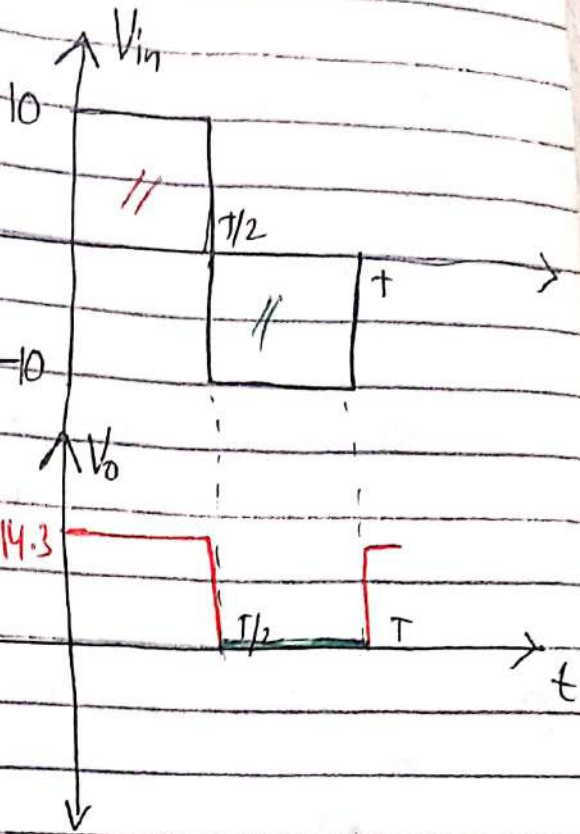 Vin
10
T/2
T
-10
Vo
14.3
T/2
T
t